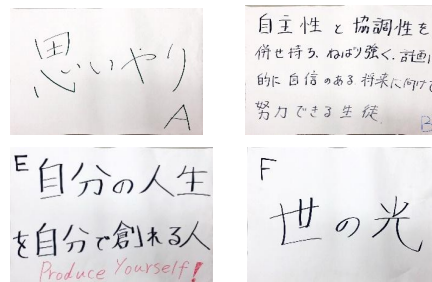 思いやり
A
自主性 と 協調性を
併せ持ち、ねばり強く、計画
的に 自信のある 将来に向け
努力できる 生徒
B
E
自分の人生
を自分で創れる人
Produce Yourself!
F
世の光